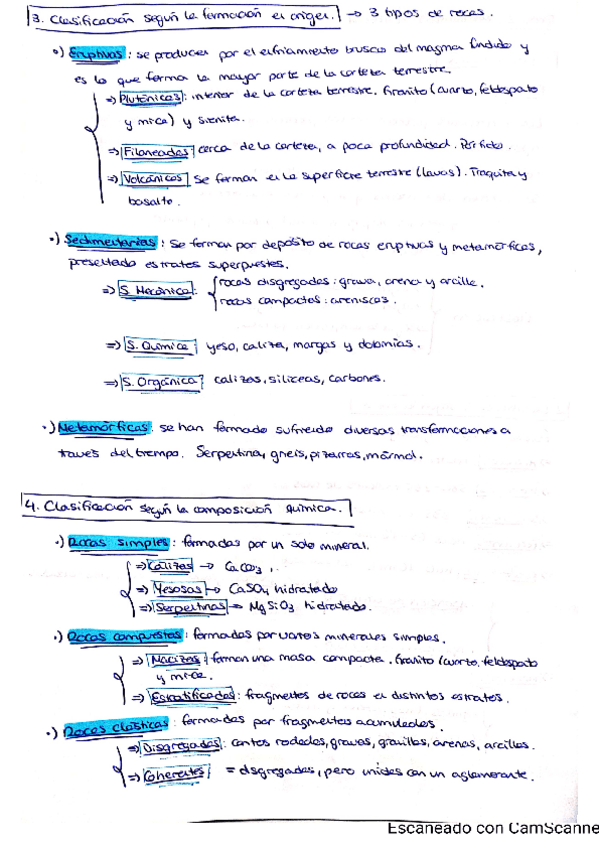 3. Clasificación según la formación el origen. → 3 tipos de rocas.
•) Eruptivas: se producen por el enfriamiento brusco del magma fundido y
es lo que forma la mayor parte de la corteza terrestre.
⇒ Plutónicas: interior de la corteza terrestre. Granito (cuarzo, feldespato
y mica) y sienita.
⇒ Filoneadas cerca de la corteza, a poca profundidad. Pórfido.
⇒ Volcánicas se forman en la superficie terrestre (lavas). Traquita y
basalto.
•) Sedimentarias: Se forman por depósito de rocas eruptivas y metamórficas,
presentado estratos superpuestos.
⇒ S. Mecánica. rocas disgregadas: grava, arena y arcilla.
rocas compactas: areniscas.
⇒ S. Química yeso, caliza, margas y dolomías.
⇒ S. Orgánica calizas, silíceas, carbones.
•) Metamórficas: se han formado sufriendo diversas transformaciones a
través del tiempo. Serpentina, gneis, pizarras, mármol.
4. Clasificación según la composición química.
•) Rocas simples: formadas por un solo mineral.
⇒ Calizas → CaCO3.
⇒ Yesosas → CaSO4 hidratado
⇒ Serpentinas → MgSiO3 hidratado.
•) Rocas compuestas: formadas por varios minerales simples.
⇒ Macizas: forman una masa compacta. Granito (cuarzo, feldespato
y mica.
⇒ Estratificadas: fragmentos de rocas en distintos estratos.
•) Rocas clásticas: formadas por fragmentos acumulados.
⇒ Disgregadas: cantos rodados, gravas, gravillas, arenas, arcillas.
⇒ Coherentes = disgregadas, pero unidas con un aglomerante.
Escaneado con CamScanne